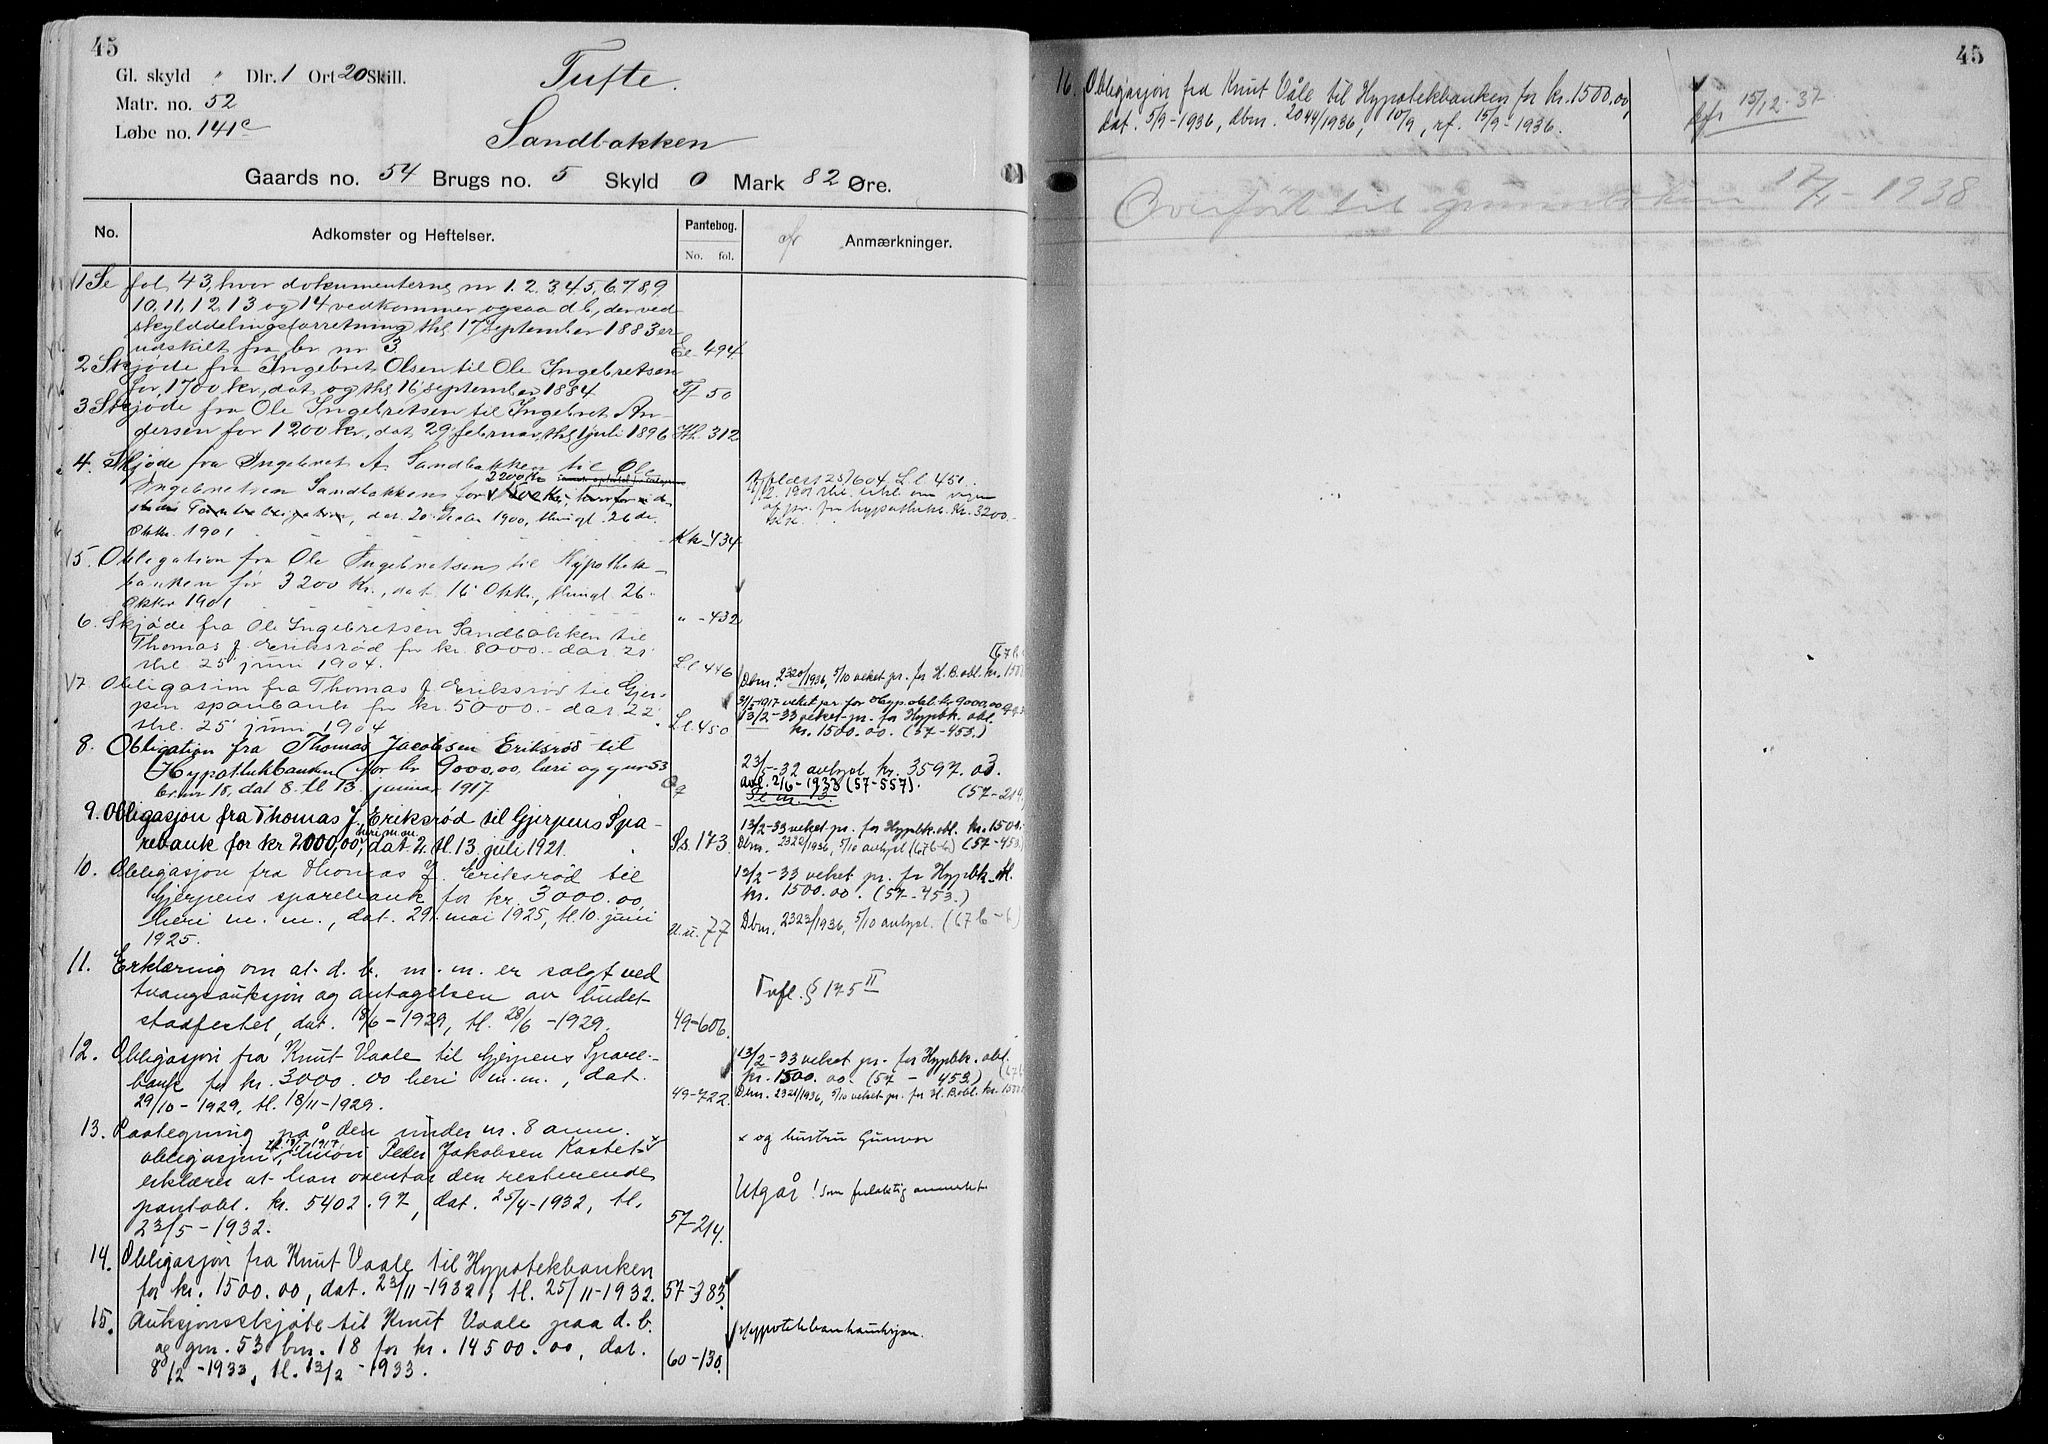 45
Gl. skyld " Dlr. 1 Ort 20 Skill.
Tufte.
Matr. no. 52
Løbe no. 141c
Sandbakken
Gaards no. 54 Brugs no. 5 Skyld 0 Mark 82 Øre.
No. Adkomster og Heftelser. Pantebog. No. fol. Anmærkninger.
1 Se fol. 43, hvor dokumenterne nr 1. 2. 3, 4, 5, 6, 7, 8, 9
10, 11, 12, 13 og 14 vedkommer ogsaa d b, der ved
skylddelingsforretning thl. 17 september 1883 er
udskilt fra br nr 3. Ee. 494.
2 Skjøde fra Ingebret Olsen til Ole Ingebretsen
for 1700 kr, dat og thl 16 september 1884 Ff 50
3 Skjøde fra Ole Ingebretsen til Ingebret An-
dersen for 1200 kr, dat 29 februar, thl 1 juli 1896 Hh. 312
4. Skjøde fra Ingebret A. Sandbakken til Ole
Ingebretsen Sandbakken for 2200 Kr.
dat. 20 1900, thingl. 26 de
Oktbr. 1901 Kk-434
Aflæst 25/6 04 L.l. 451.
af pr. for hypothekb. Kr. 3200.-
5. Obligation fra Ole Ingebretsen til Hypothek-
banken for 3200 Kr., dat. 16 Oktbr., thingl. 26
Oktbr 1901 " - 432
6. Skjøde fra Ole Ingebretsen Sandbakken til
Thomas J. Eriksrød for kr. 8000.- dat. 21
thl. 25 juni 1904. L.l. 446
7. Obligation fra Thomas J. Eriksrød til Gjer-
pen sparebank for kr. 5000.- dat. 22
thl. 25 juni 1904 L.l. 450
Dbm. 2320/1936, 5/10 veket pr. for H.B.obl. kr. 1500
31/5-1917 veket pr. for Hyp.obl. kr 9000,00
13/2-33 veket pr. for Hypbk. obl.
kr. 1500.00. (57-453.)
8. Obligation fra Thomas Jacobsen Eriksrød til
Hypothekbanken for kr 9000,00, heri og gnr 53
br.nr 18, dat 8. tl 13. januar 1917
23/5-32 avlyst kr. 3597.03.
(57-214)
avl. 2/6-1933 (57-557).
9. Obligasjon fra Thomas J. Eriksrød til Gjerpens Spa-
rebank for kr 2000,00, heri m.m. dat 2. tl. 13. juli 1921. Ss. 173.
13/2-33 veket pr. for Hypbk.obl. kr. 1500.-
Dbm. 2322/1936, 5/10 avlyst (67b-6) (57-453.)
10. Obligasjon fra Thomas J. Eriksrød til
Gjerpens sparebank for kr. 3000.00,
heri m. m., dat. 29. mai 1925, tl. 10. juni
1925. U.u. 77
13/2-33 veket pr. for Hypbk. obl.
kr. 1500.00. (57-453.)
Dbm. 2323/1936, 5/10 avlyst. (67b-6)
11. Erklæring om at d. b. m. m. er solgt ved
tvangsauksjon og antagelsen av budet
stadfestet, dat. 18/6-1929, tl. 28/6-1929. 49-606.
Tvfl. § 175 II
12. Obligasjon fra Knut Vaale til Gjerpens Spare-
bank for kr. 3000.00 heri m.m., dat.
29/10-1929, tl. 18/11-1929. 49-722.
13/2-33 veket pr. for Hypbk. obl.
kr. 1500.00. (57-453.)
Dbm. 2321/1936, 5/10 veket pr. for H.Bobl. kr. 1500
13. Paategning på den under nr. 8 anm.
obligasjon, tl. 13/1 1917, hvori Peder Jakobsen Kastet x
erklærer at han overtar den resterende
pantobl. kr. 5402.97, dat. 25/4-1932, tl.
23/5-1932. 57-214.
x og hustru Gunvor
Utgår! som feilaktig anmerket
14. Obligasjon fra Knut Vaale til Hypotekbanken
for kr. 1500.00, dat. 23/11-1932, tl. 25/11-1932. 57-383.
15. Auksjonsskjøte til Knut Vaale paa d. b.
og gnr. 53 brn. 18 for kr. 14500.00, dat.
8/2-1933, tl. 13/2-1933. 60-130.
Hypotekbankauksjon.
45
16. Obligasjon fra Knut Våle til Hypotekbanken for kr. 1500.00,
dat. 5/9-1936, dbm. 2044/1936, 10/9, rf. 15/9-1936.
15/12-37
Overført til grunnboken 17/1-1938